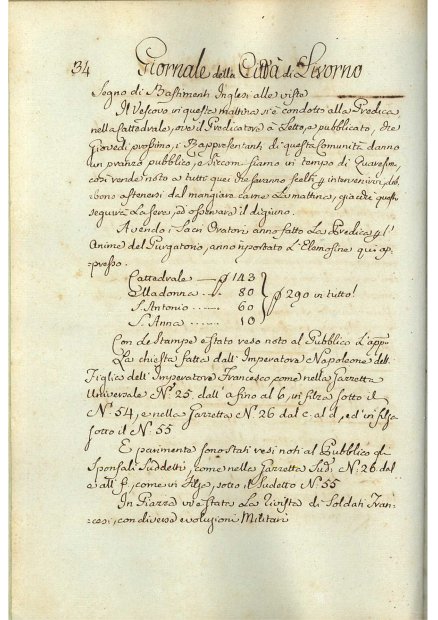 34 Giornale della Città di Livorno
Segno di Bastimenti Inglesi alle viste
Il Vescovo in questa mattina si è condotto alla Predica
nella Cattedrale, ove il Predicatore à Letto, e pubblicato, che
Giovedì prossimo, i Rappresentanti di questa Comunità danno
un pranzo pubblico, e siccome siamo in tempo di Quaresima,
così rende noto a tutti quei che saranno scelti p intervenirvi, deb,
bono astenersi dal mangiare carne La mattina, giacchè questo
seguirà La sera, ed osservare il digiuno.
Avendo i Sacri Oratori anno fatto La Predica p l'
Anime del Purgatorio, anno riportato L'Elemosine qui ap-
presso.
Cattedrale — 143
Madonna 80
S. Antonio 60
S. Anna 10
290 in tutto
Con Le Stampe è stato reso noto al Pubblico
La chiesta fatta dall'Imperatore Napoleone dell.
Figlia dell'Imperatore Francesco, come nella Gazzetta
Universale N.° 25. dall'a fino al b, in filza sotto il
N.° 54, e nella Gazzetta N.° 26 dal c. al d, ed in filza
sotto il N.° 55
E parimente sono stati resi noti al Pubblico gli
Sponsali Suddetti, come nella Gazzetta Sud. N.° 26 dal
e all' f, come in filza, sotto il sudetto N.° 55
In Piazza vi è stata La rivista di Soldati Fran-
cesi, con diverse evoluzioni Militari